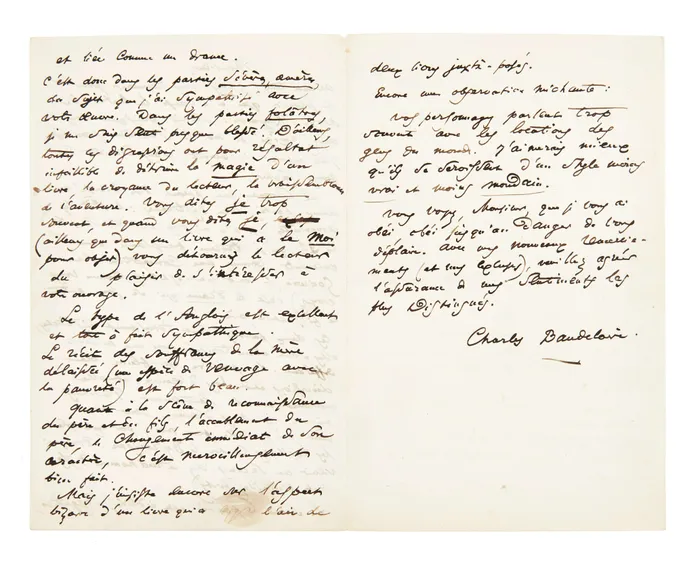 et liée comme un drame.
C'est donc dans les parties sévères, amères
du sujet que j'ai sympathisé avec
votre œuvre. Dans les parties folâtres,
je me suis senti presque blessé. D'ailleurs,
toutes les digressions ont pour résultat
infaillible de détruire la magie d'un
livre, la croyance du lecteur, la vraisemblance
de l'aventure. Vous dites je trop
souvent, et quand vous dites je,
(ailleurs que dans un livre qui a le Moi
pour objet) vous détournez le lecteur
du plaisir de s'intéresser à
votre ouvrage.
Le type de l'Anglais est excellent
et tout à fait sympathique.
Le récit des souffrances de la mère
délaissée (une espèce de veuvage avec
la pauvreté) est fort beau.
quant à la scène de reconnaissance
du père et du fils, l'accablement du
père, le changement immédiat de son
caractère, c'est merveilleusement
bien fait.
Mais j'insiste encore sur l'aspect
bizarre d'un livre qui a l'air de
deux livres juxta-posés.
Encore une observation méchante :
vos personnages parlent trop
souvent avec les locutions des
gens du monde. J'aimerais mieux
qu'ils se servissent d'un style moins
vrai et moins mondain.
Vous voyez, Monsieur, que je vous ai
obéi obéi jusqu'au danger de vous
déplaire. Avec mes nouveaux remercie-
ments (et mes excuses), veuillez agréer
l'assurance de mes sentiments les
plus distingués.
Charles Baudelaire.